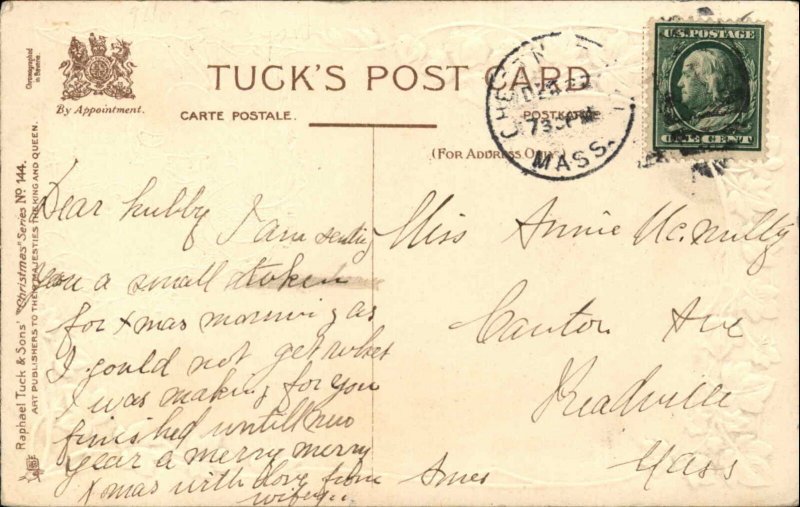 Chromographed
in Bavaria
By Appointment.
TUCK'S POST CARD
CARTE POSTALE. POSTKARTE
(FOR ADDRESS ONLY)
Raphael Tuck & Sons' "Christmas" Series Nº 144.
ART PUBLISHERS TO THEIR MAJESTIES THE KING AND QUEEN.
DEC
730 PM
MASS.
U.S. POSTAGE
ONE CENT
Dear hubby I am sending
you a small token
for Xmas morning as
I could not get what
I was making for you
finished untill new
year a merry merry
Xmas with love from
wifey
Miss Annie McNulty
Canton Ave
Readville
Mass
Ames